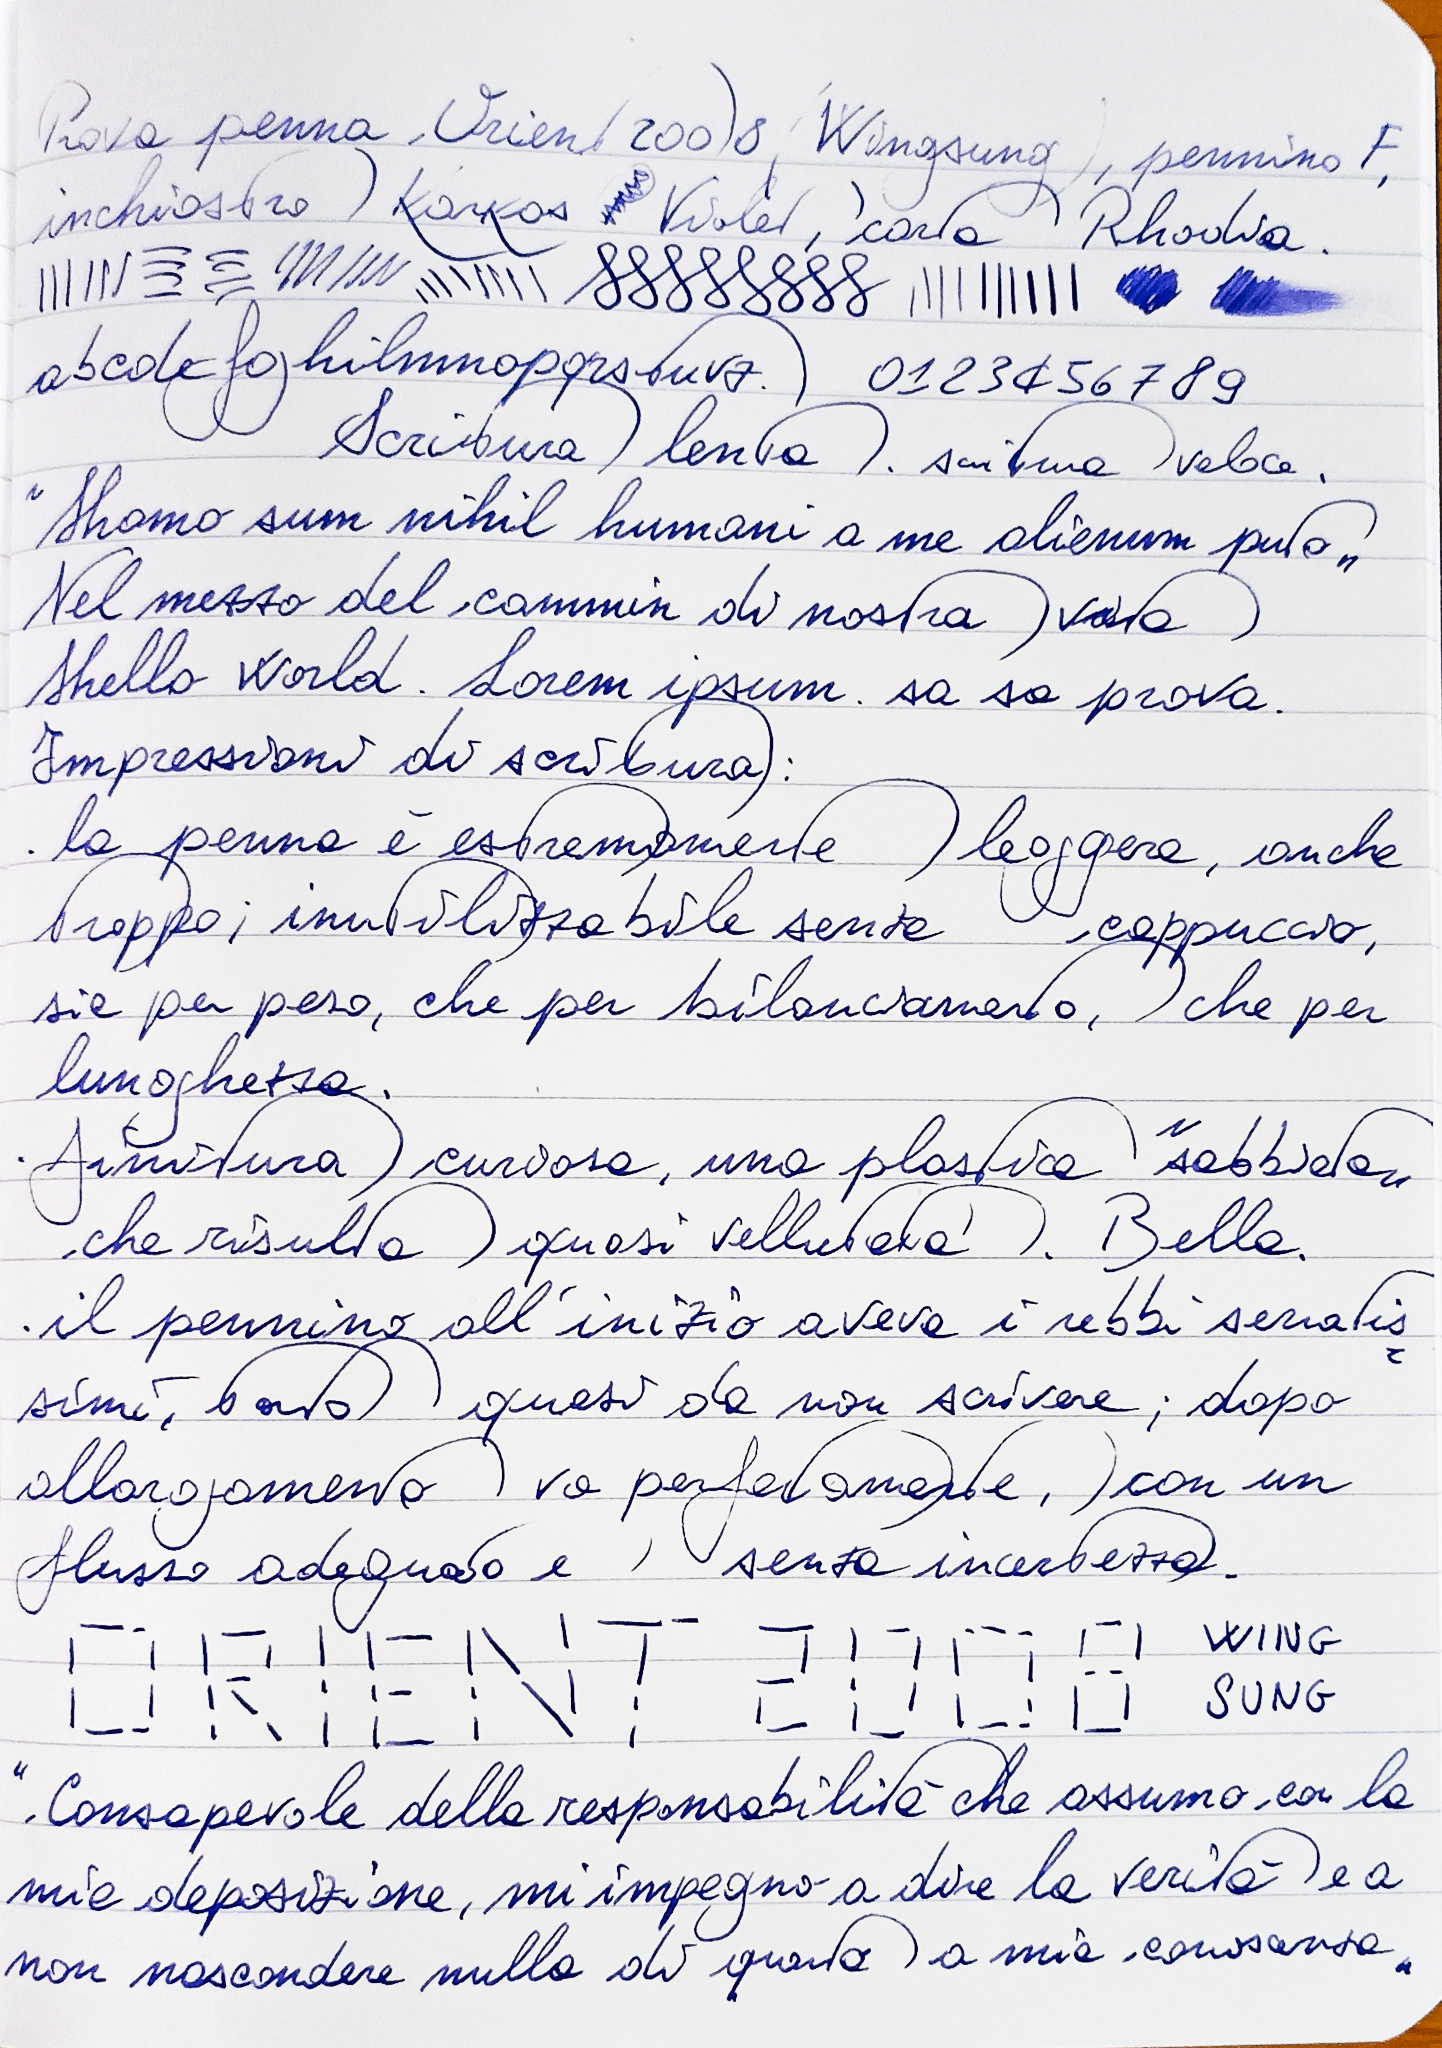 Prova penna Orient 2008 (Wingsung), pennino F,
inchiostro Karkos Violet, carta Rhodia.
abcdefghilmnopqrstuvz. 0123456789
Scrittura lenta. scrittura veloce.
"Homo sum nihil humani a me alienum puto"
Nel mezzo del cammin di nostra vita
Hello World. Lorem ipsum. sa sa prova.
Impressioni di scrittura:
. la penna è estremamente leggera, anche
troppo; inutilizzabile senza cappuccio,
sia per peso, che per bilanciamento, che per
lunghezza.
. finitura curiosa, una plastica "sabbiata"
che risulta quasi vellutata. Bella.
. il pennino all'inizio aveva i rebbi serratis=
simi, tanto quasi da non scrivere; dopo
allargamento va perfettamente, con un
flusso adeguato e senza incertezza.
ORIENT 2008 WING
SUNG
"Consapevole della responsabilità che assumo con la
mia deposizione, mi impegno a dire la verità e a
non nascondere nulla di quanto a mia conoscenza"